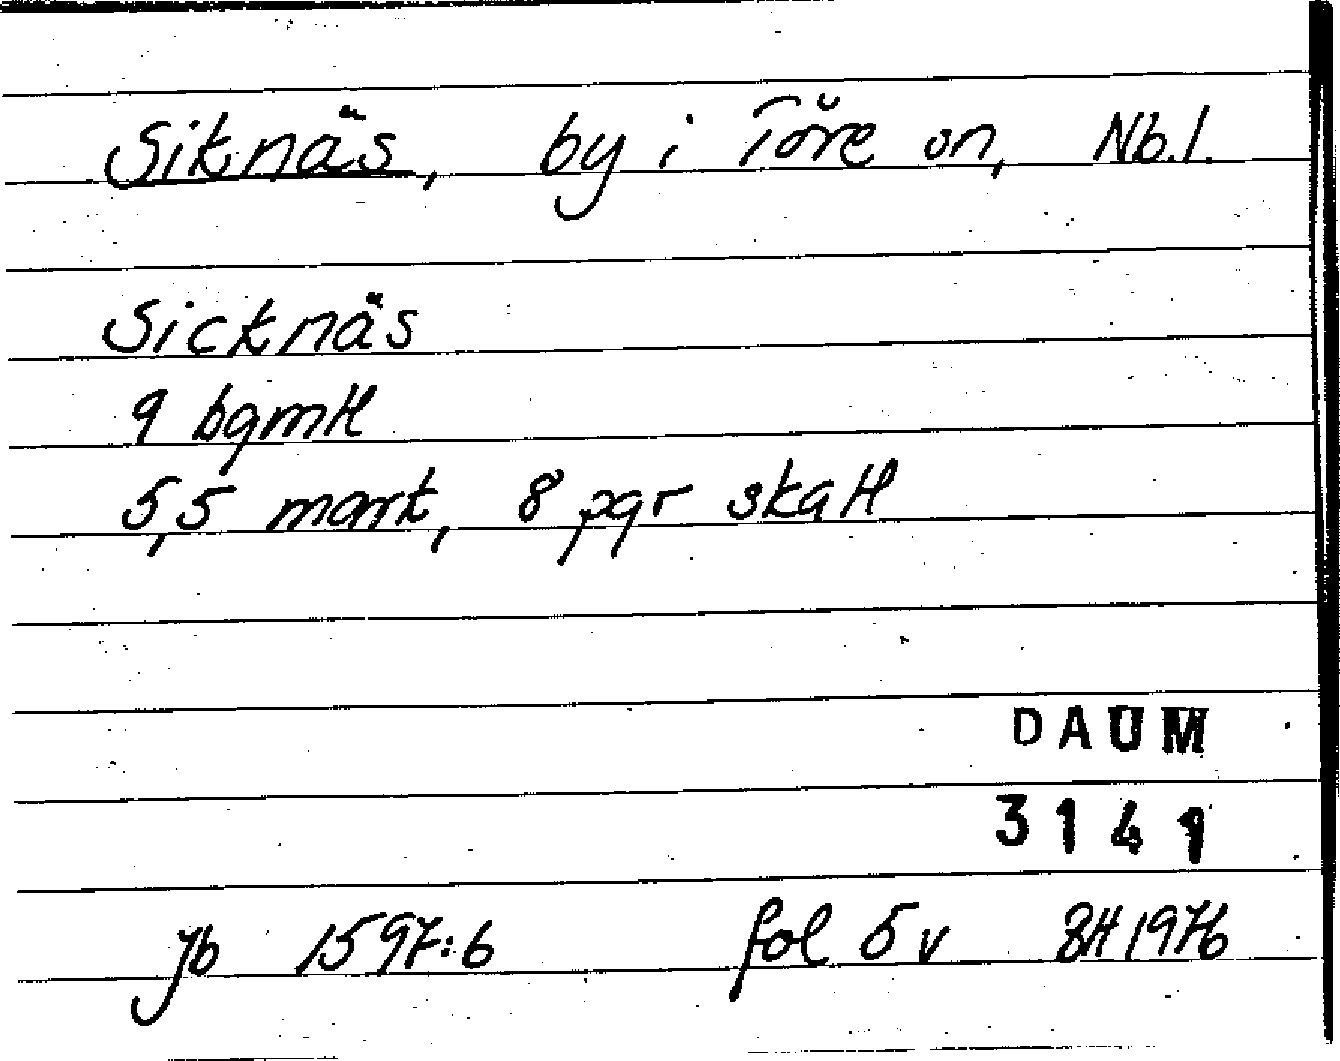 Siknäs, by i Töre sn, Nb.l.
Sicknäs
9 bgmtl
5,5 mark, 8 pgr skatt
DAUM
3141
Jb 1597:6 fol 5 v BH 1976